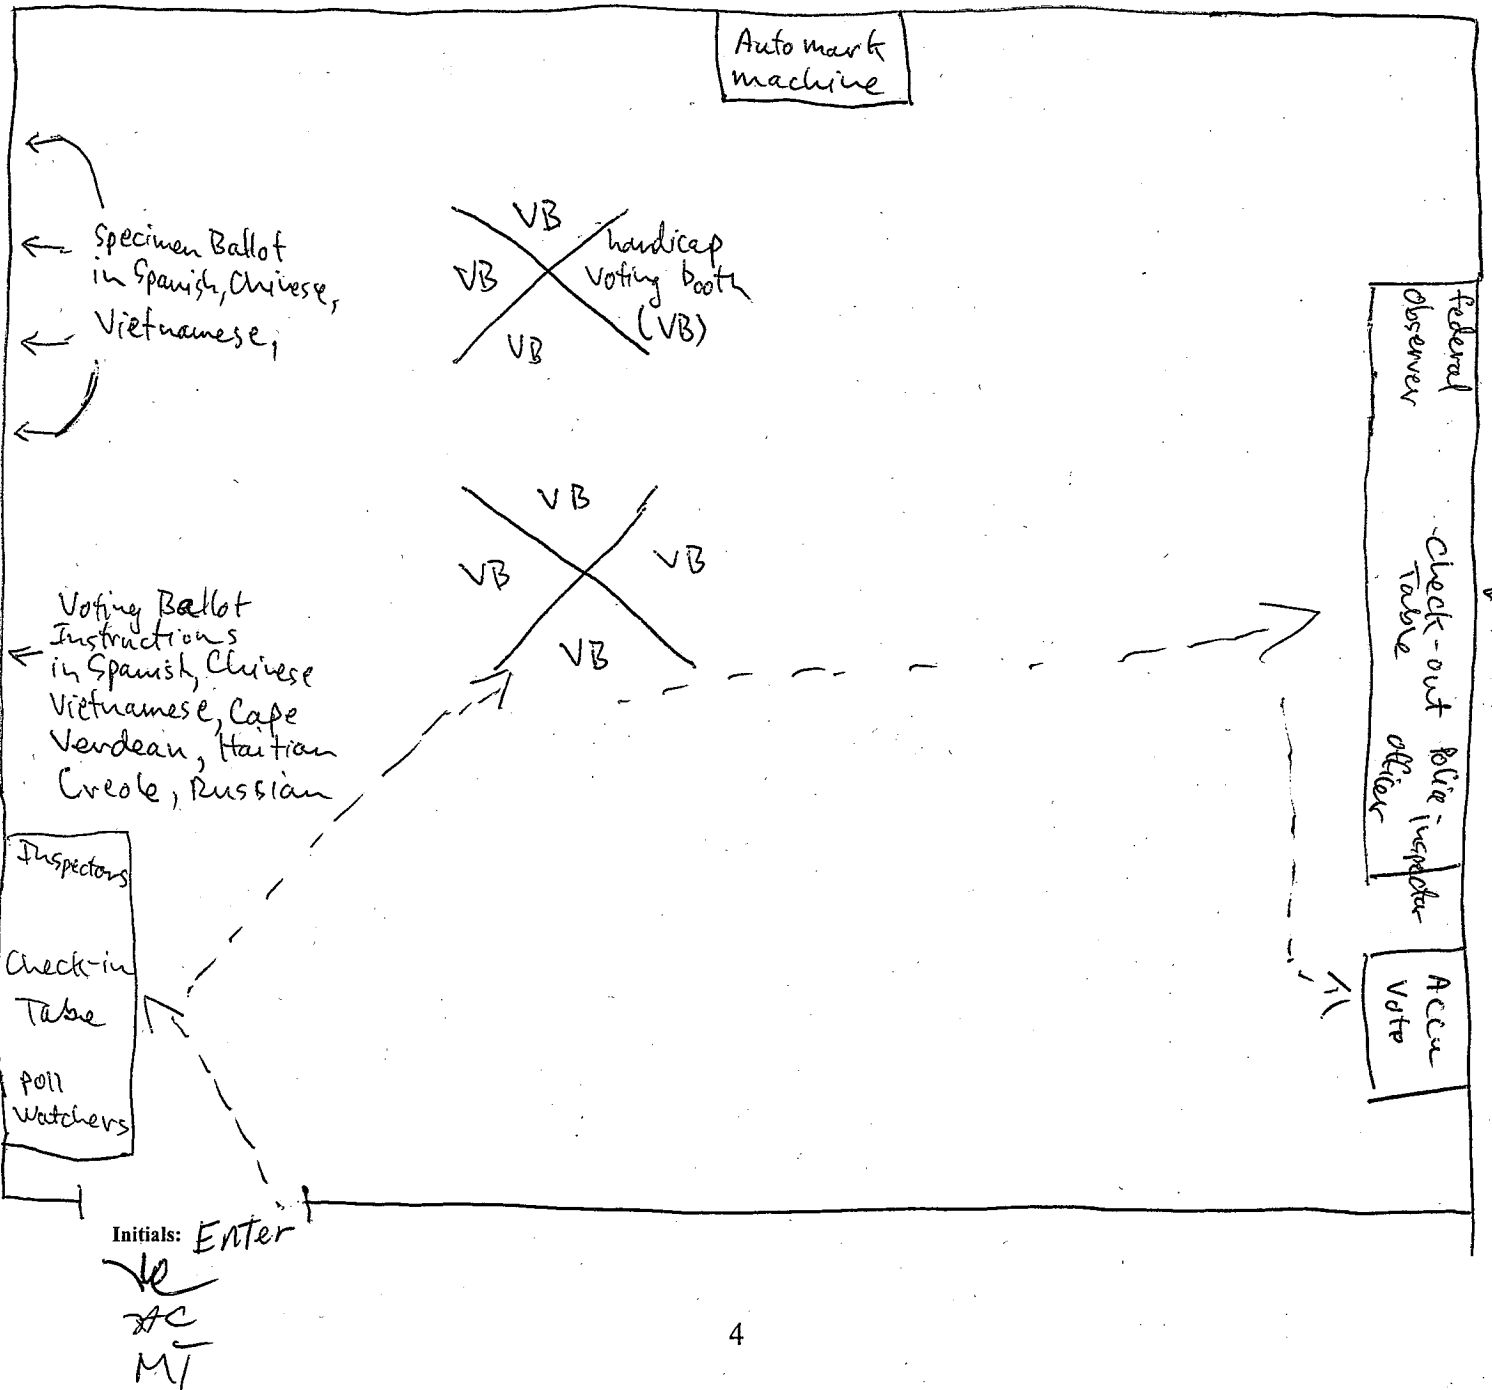 Automark
machine
Specimen Ballot
in Spanish, Chinese,
Vietnamese,
VB
VB
handicap
voting booth
(VB)
VB
federal
observer
VB
VB
VB
VB
Check-out
Table
Voting Ballot
Instructions
in Spanish, Chinese
Vietnamese, Cape
Verdean, Haitian
Creole, Russian
Police inspector
officer
Inspectors
Check-in
Table
Poll
Watchers
Accu
Vote
Initials: Enter
AC
MT
4